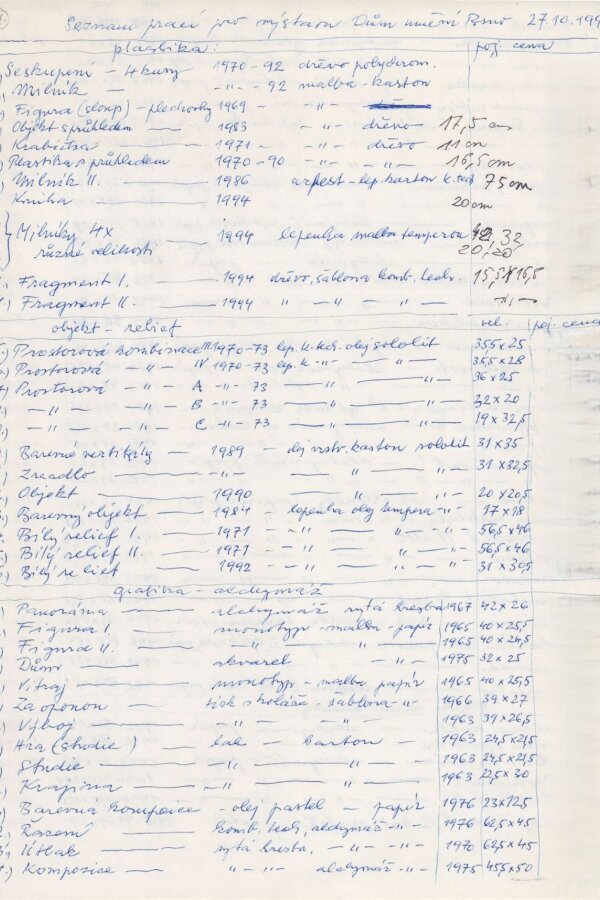 Seznam prací pro výstavu Dům umění Brno 27.10.199
plastika: poj. cena
Seskupení - 4 kusy 1970-92 dřevo polychrom.
Milník - -"- -92 malba - karton
Figura (sloup) - plechovky 1969 - -"-
Objekt s průhledem — 1983 -"- dřevo 17,5 cm
Krabička — 1971 - -"- dřevo 11 cm
Plastika s průhledem 1970-90 -"- -"- 16,5 cm
Milník II. — 1986 - lep. karton k. tech 75 cm
Kniha 1994 20 cm
Milníky 4x — 1994 lepenka malba temperou 42, 32
různé velikosti 20, 20
Fragment I. — 1994 dřevo, šablona komb. tech. 15,5 x 16,5
Fragment II. — 1994 " " — " — -"-
objekt - relief vel. poj. cena
Prostorová kombinace III 1970-73 lep. k. olej sololit 35,5 x 25
Prostorová -"- IV 1970-73 lep. k -"- -"- 35,5 x 28
Prostorová -"- A -"- 73 —"— —"— 36 x 25
—"— -"- B -"- 73 —"— —"— 32 x 20
—"— -"- C -"- 73 —"— —"— 19 x 32,5
Barevné vertikály — 1989 - olej vrstv. karton sololit 31 x 35
Zrcadlo — -"- — " — " — 31 x 32,5
Objekt — 1990 — " — " - 20 x 20,5
Barevný objekt — 1984 - lepenka olej tempera -"- 17 x 18
Bílý relief I. — 1971 - -"- — " — " - 56,5 x 46
Bílý relief II. — 1971 — " — " - 56,5 x 46
Bílý relief — 1992 - -"- — " — " - 31 x 30,5
grafika - aldymáž
Panoráma — aldymáž rytá kresba 1967 42 x 26
Figura I. — monotyp - malba - papír 1965 40 x 25,5
Figura II. — " — " — 1965 40 x 24,5
Dům — akvarel — " — 1975 32 x 25
Vitraj — monotyp - malba papír 1965 40 x 25,5
Za oponou — tisk s koláže - šablona -"- 1966 39 x 27
Vývoj — -"- — " — 1963 39 x 26,5
Hra (studie) — lak - karton - 1963 24,5 x 21,5
Studie — " — " — 1963 24,5 x 21,5
Krajina — " — " — 1963 22,5 x 30
Barevná kompozice - olej pastel - papír 1976 23 x 12,5
Řazení — komb. tech, aldymáž -"- 1976 62,5 x 45
Útlak — rytá kresba, -"- -"- 1970 62,5 x 45
Kompozice — " - " - aldymáž -"- 1975 45,5 x 50